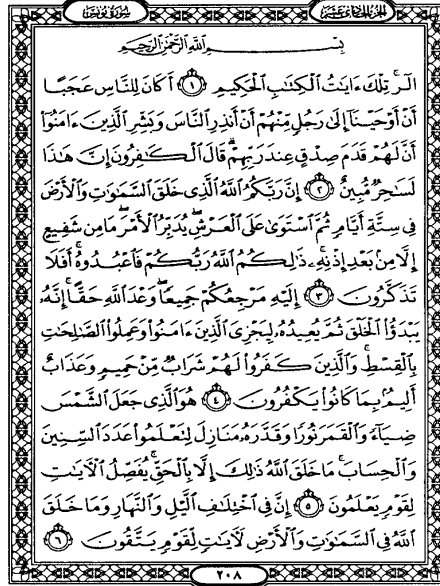 سورة يونس الجزء الحادي عشر
بِسْمِ اللَّهِ الرَّحْمَٰنِ الرَّحِيمِ
الٓر ۚ تِلْكَ ءَايَٰتُ ٱلْكِتَٰبِ ٱلْحَكِيمِ ١ أَكَانَ لِلنَّاسِ عَجَبًا
أَنْ أَوْحَيْنَآ إِلَىٰ رَجُلٍ مِّنْهُمْ أَنْ أَنذِرِ ٱلنَّاسَ وَبَشِّرِ ٱلَّذِينَ ءَامَنُوٓا۟
أَنَّ لَهُمْ قَدَمَ صِدْقٍ عِندَ رَبِّهِمْ ۗ قَالَ ٱلْكَٰفِرُونَ إِنَّ هَٰذَا
لَسَٰحِرٌ مُّبِينٌ ٢ إِنَّ رَبَّكُمُ ٱللَّهُ ٱلَّذِى خَلَقَ ٱلسَّمَٰوَٰتِ وَٱلْأَرْضَ
فِى سِتَّةِ أَيَّامٍ ثُمَّ ٱسْتَوَىٰ عَلَى ٱلْعَرْشِ ۖ يُدَبِّرُ ٱلْأَمْرَ ۖ مَا مِن شَفِيعٍ
إِلَّا مِنۢ بَعْدِ إِذْنِهِۦ ۚ ذَٰلِكُمُ ٱللَّهُ رَبُّكُمْ فَٱعْبُدُوهُ ۚ أَفَلَا
تَذَكَّرُونَ ٣ إِلَيْهِ مَرْجِعُكُمْ جَمِيعًا ۖ وَعْدَ ٱللَّهِ حَقًّا ۚ إِنَّهُۥ
يَبْدَؤُا۟ ٱلْخَلْقَ ثُمَّ يُعِيدُهُۥ لِيَجْزِىَ ٱلَّذِينَ ءَامَنُوا۟ وَعَمِلُوا۟ ٱلصَّٰلِحَٰتِ
بِٱلْقِسْطِ ۚ وَٱلَّذِينَ كَفَرُوا۟ لَهُمْ شَرَابٌ مِّنْ حَمِيمٍ وَعَذَابٌ
أَلِيمٌۢ بِمَا كَانُوا۟ يَكْفُرُونَ ٤ هُوَ ٱلَّذِى جَعَلَ ٱلشَّمْسَ
ضِيَآءً وَٱلْقَمَرَ نُورًا وَقَدَّرَهُۥ مَنَازِلَ لِتَعْلَمُوا۟ عَدَدَ ٱلسِّنِينَ
وَٱلْحِسَابَ ۚ مَا خَلَقَ ٱللَّهُ ذَٰلِكَ إِلَّا بِٱلْحَقِّ ۚ يُفَصِّلُ ٱلْءَايَٰتِ
لِقَوْمٍ يَعْلَمُونَ ٥ إِنَّ فِى ٱخْتِلَٰفِ ٱلَّيْلِ وَٱلنَّهَارِ وَمَا خَلَقَ
ٱللَّهُ فِى ٱلسَّمَٰوَٰتِ وَٱلْأَرْضِ لَءَايَٰتٍ لِّقَوْمٍ يَتَّقُونَ ٦
٢٠٨